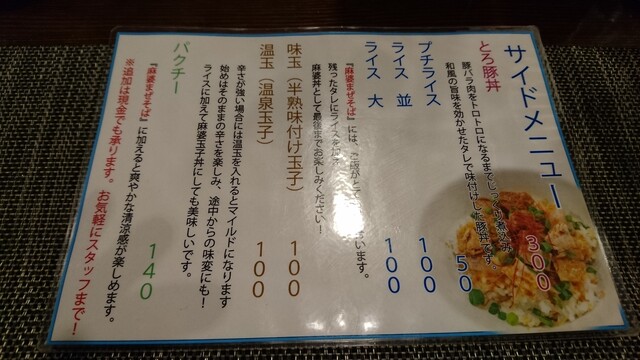 サイドメニュー
とろ豚丼 300
豚バラ肉をトロトロになるまでじっくり煮込み
和風の旨味を効かせたタレで味付けした豚丼です。
プチライス 50
ライス 並 100
ライス 大 100
『麻婆まぜそば』には、ご飯がとても
います。
残ったタレにライスを加え
麻婆丼として最後までお楽しみください！
味玉（半熟味付け玉子） 100
温玉（温泉玉子） 100
辛さが強い場合には温玉を入れるとマイルドになります
始めはそのままの辛さを楽しみ、途中からの味変にも！
ライスに加えて麻婆玉子丼にしても美味しいです。
パクチー 140
『麻婆まぜそば』に加えると爽やかな清涼感が楽しめます。
※追加は現金でも承ります。お気軽にスタッフまで！